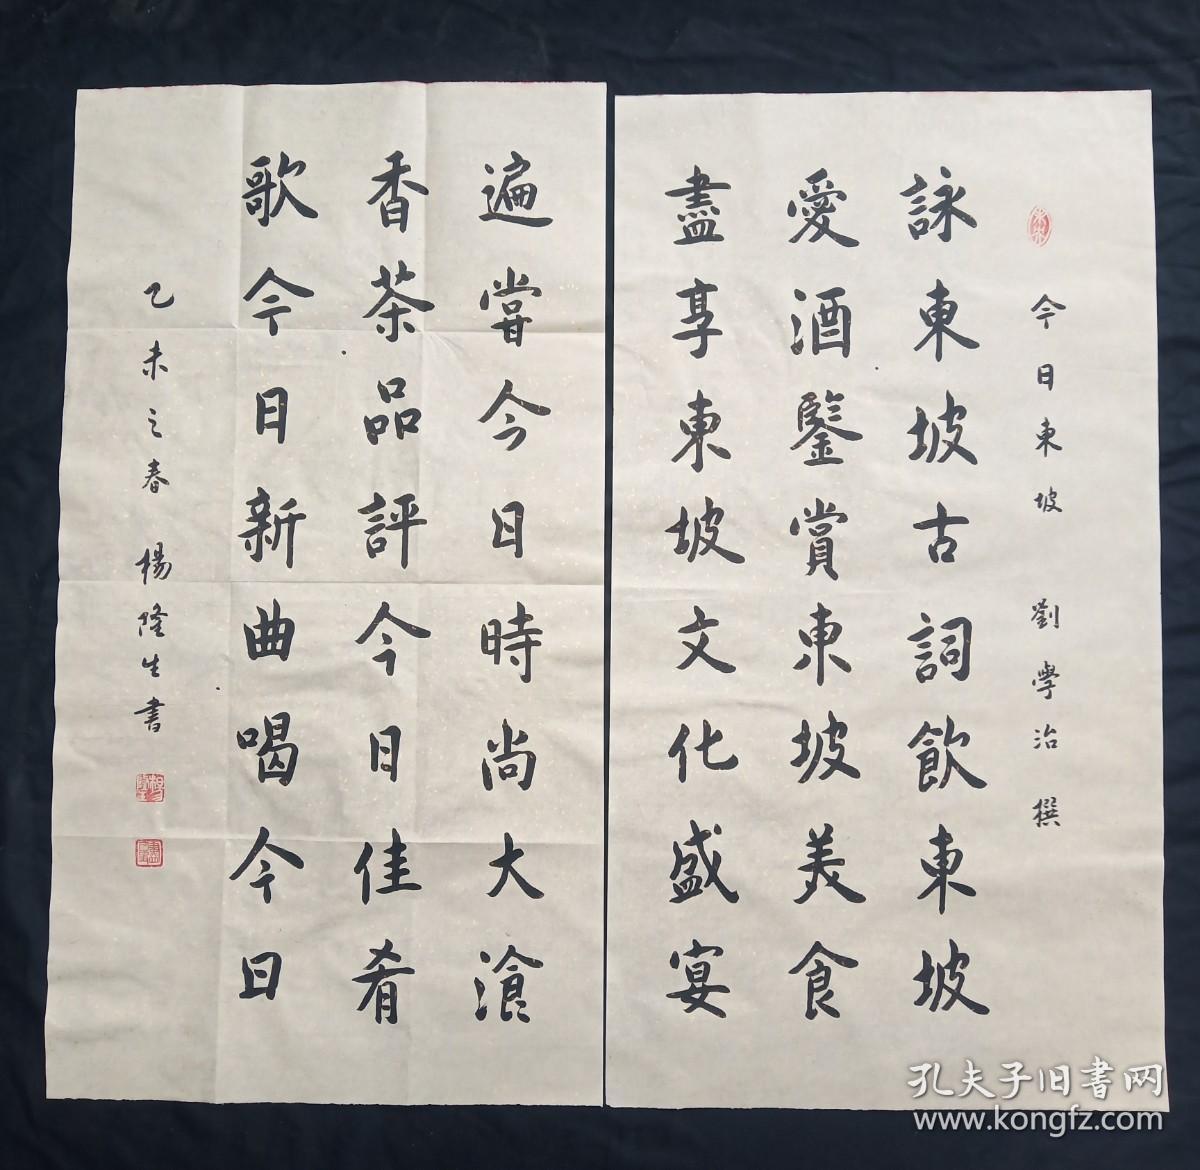 今日東坡 劉學治 撰
詠東坡古詞飲東坡
愛酒鑒賞東坡美食
盡享東坡文化盛宴
遍嘗今日時尚大湌
香茶品評今日佳肴
歌今日新曲喝今日
乙未之春 楊隆生書
孔夫子旧書网
www.kongfz.com